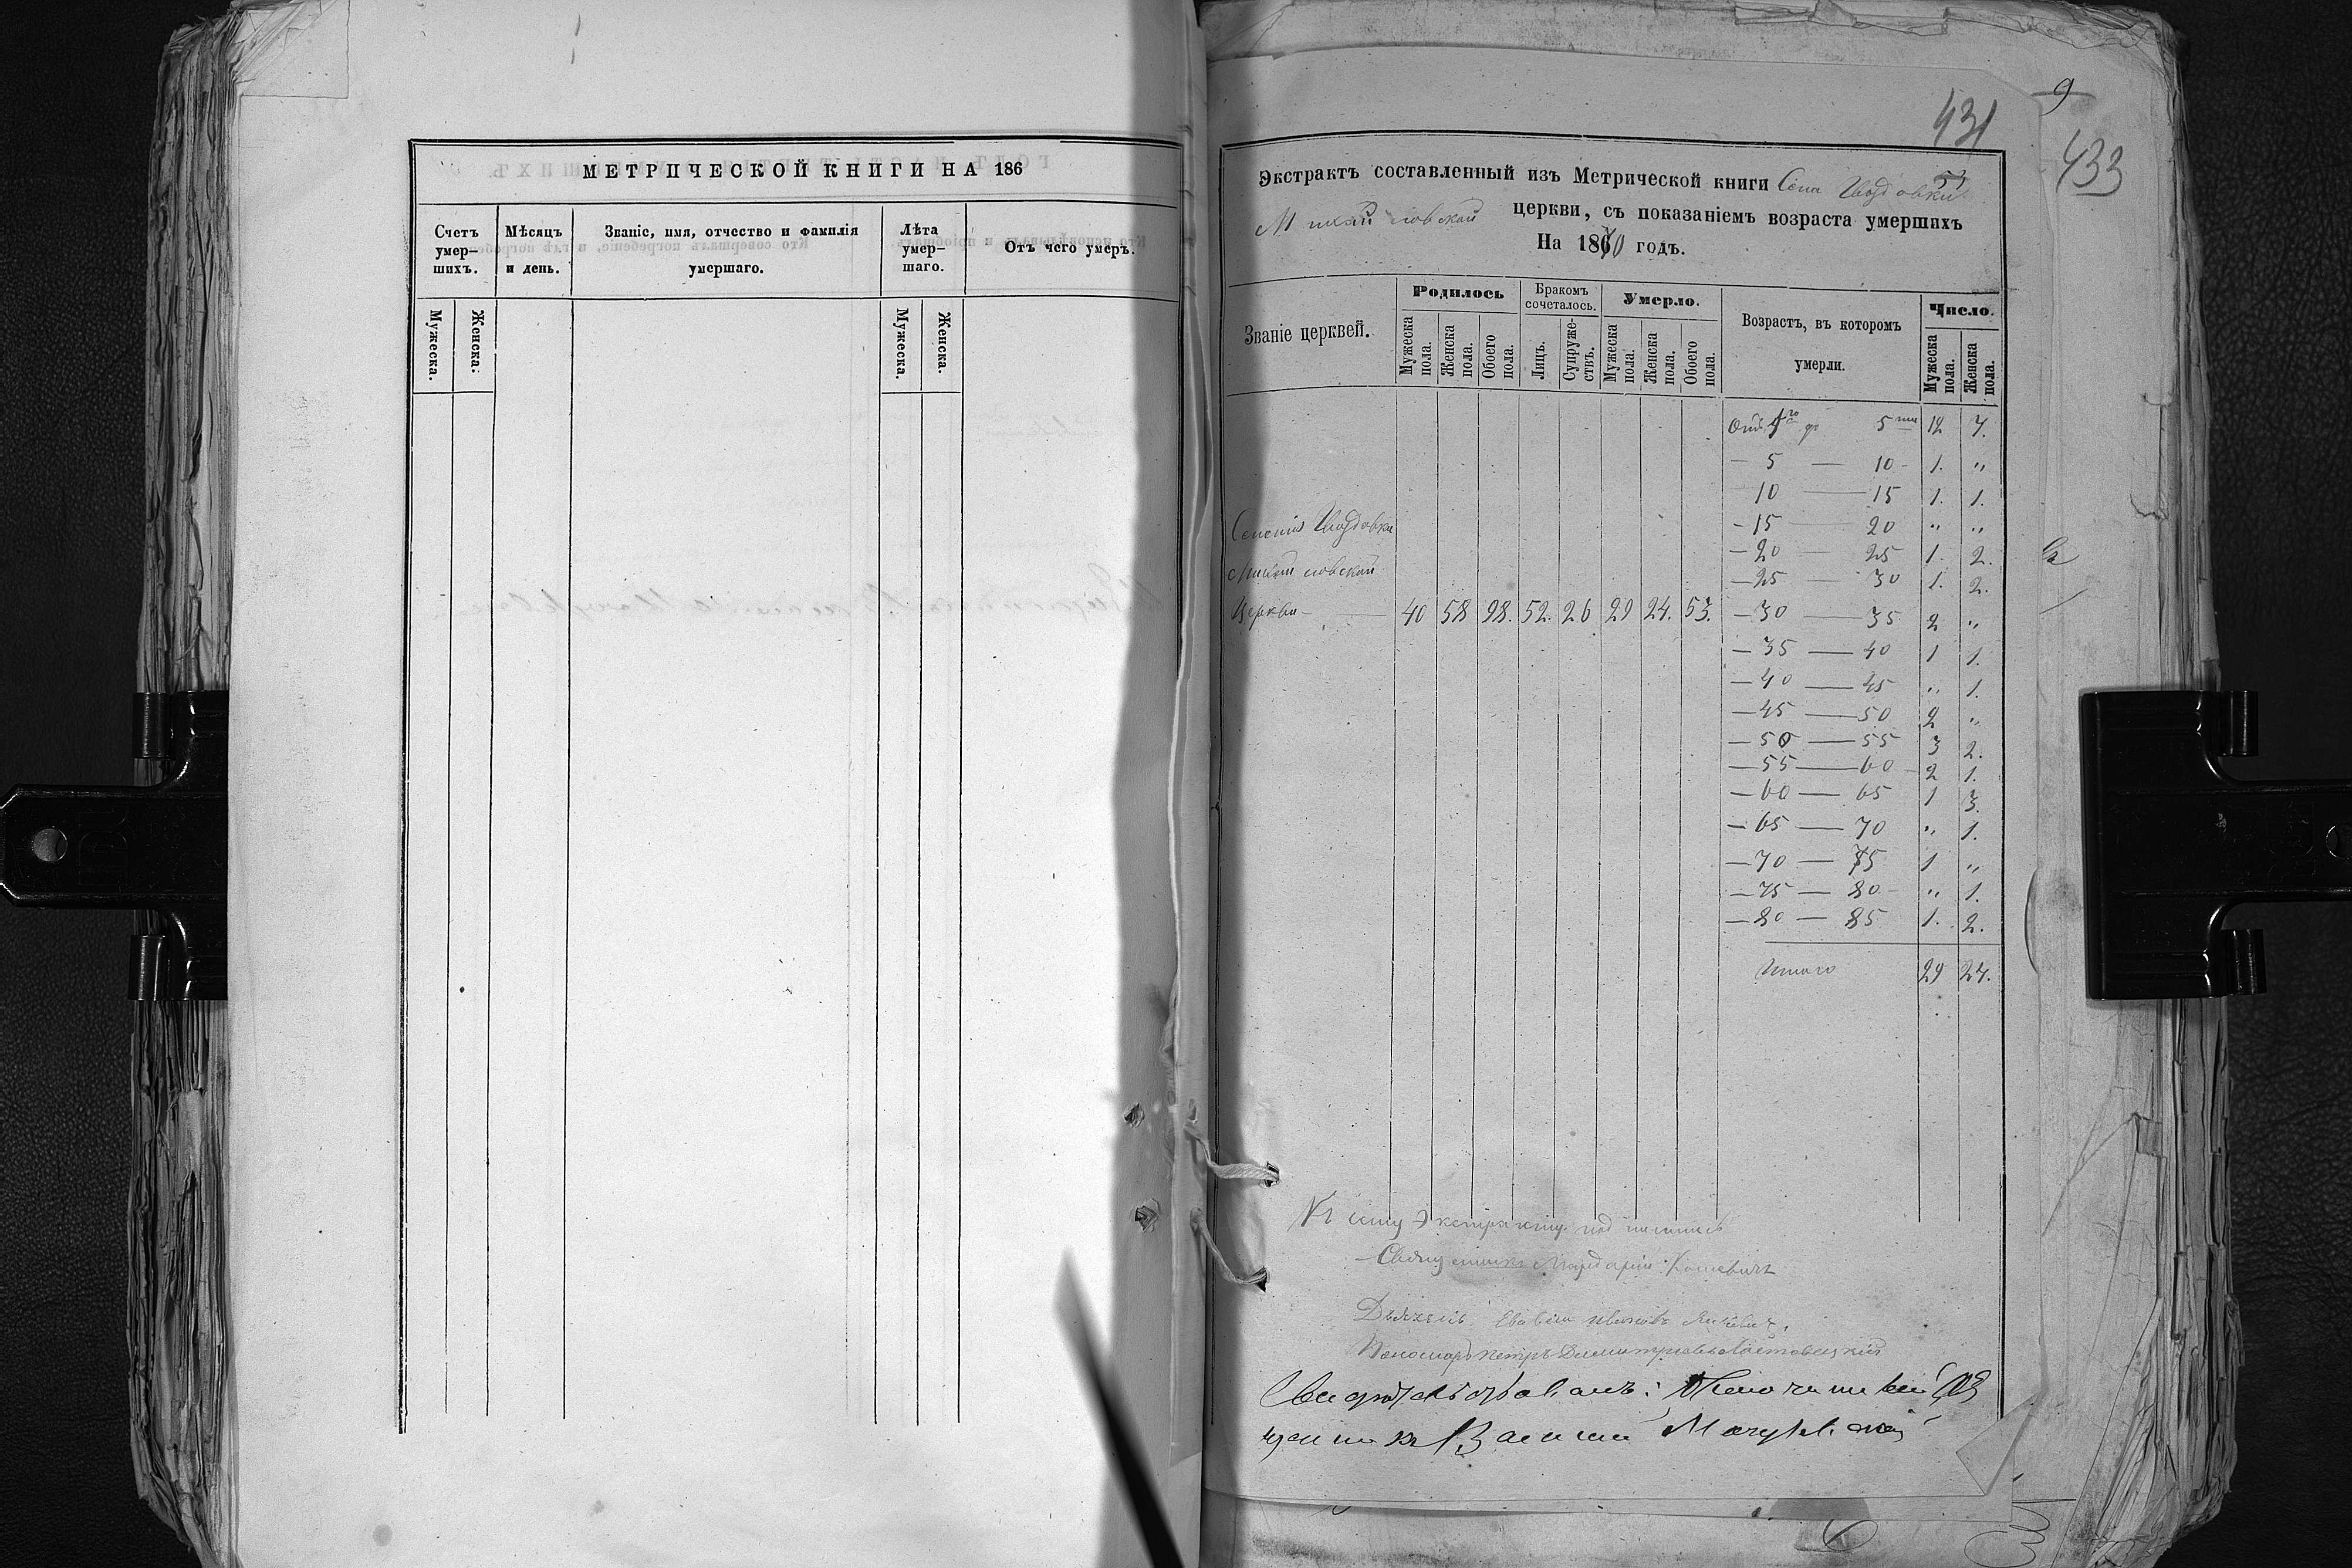 МЕТРИЧЕСКОЙ КНИГИ НА 186
Счетъ умер-шихъ.
Мѣсяцъ и день.
Званіе, имя, отчество и фамилія умершаго.
Лѣта умер-шаго.
Отъ чего умеръ.
Мужеска.
Женска.
Мужеска.
Женска.
9
431
433
53
Экстрактъ составленный изъ Метрической книги Села
Михайловской церкви, съ показаніемъ возраста умершихъ
На 1870 годъ.
Званіе церквей.
Родилось
Бракомъ сочеталось.
Умерло.
Возрастъ, въ котором умерли.
Число.
Мужеска пола.
Женска пола.
Обоего пола.
Лицъ.
Супруже-ствъ.
Мужеска пола.
Женска пола.
Обоего пола.
Мужеска пола.
Женска пола.
Отъ 1го до 5ти 12 7.
— 5 — 10 - 1. "
10 — 15 1. 1.
- 15 20 " "
- 20 — 25 1. 2.
— 25 — 30 1. 2.
Михайловской
Церкви — 40 58 98. 52. 26 29 24. 53. — 30 — 35 2 "
— 35 — 40 1 1.
— 40 — 45 " 1.
— 45 — 50 2 "
— 50 — 55 3 2.
— 55 — 60 - 2 1.
— 60 — 65 1 3.
— 65 — 70 " 1.
— 70 — 75 1 "
— 75 — 80 - " 1.
— 80 — 85 1. 2.
Итого 29 24.
Къ сему Экстракту подписались
Священникъ Мардарій
Дьячекъ
Пономарь Петръ Димитріевъ
Свидѣтельствовалъ: Благочинный